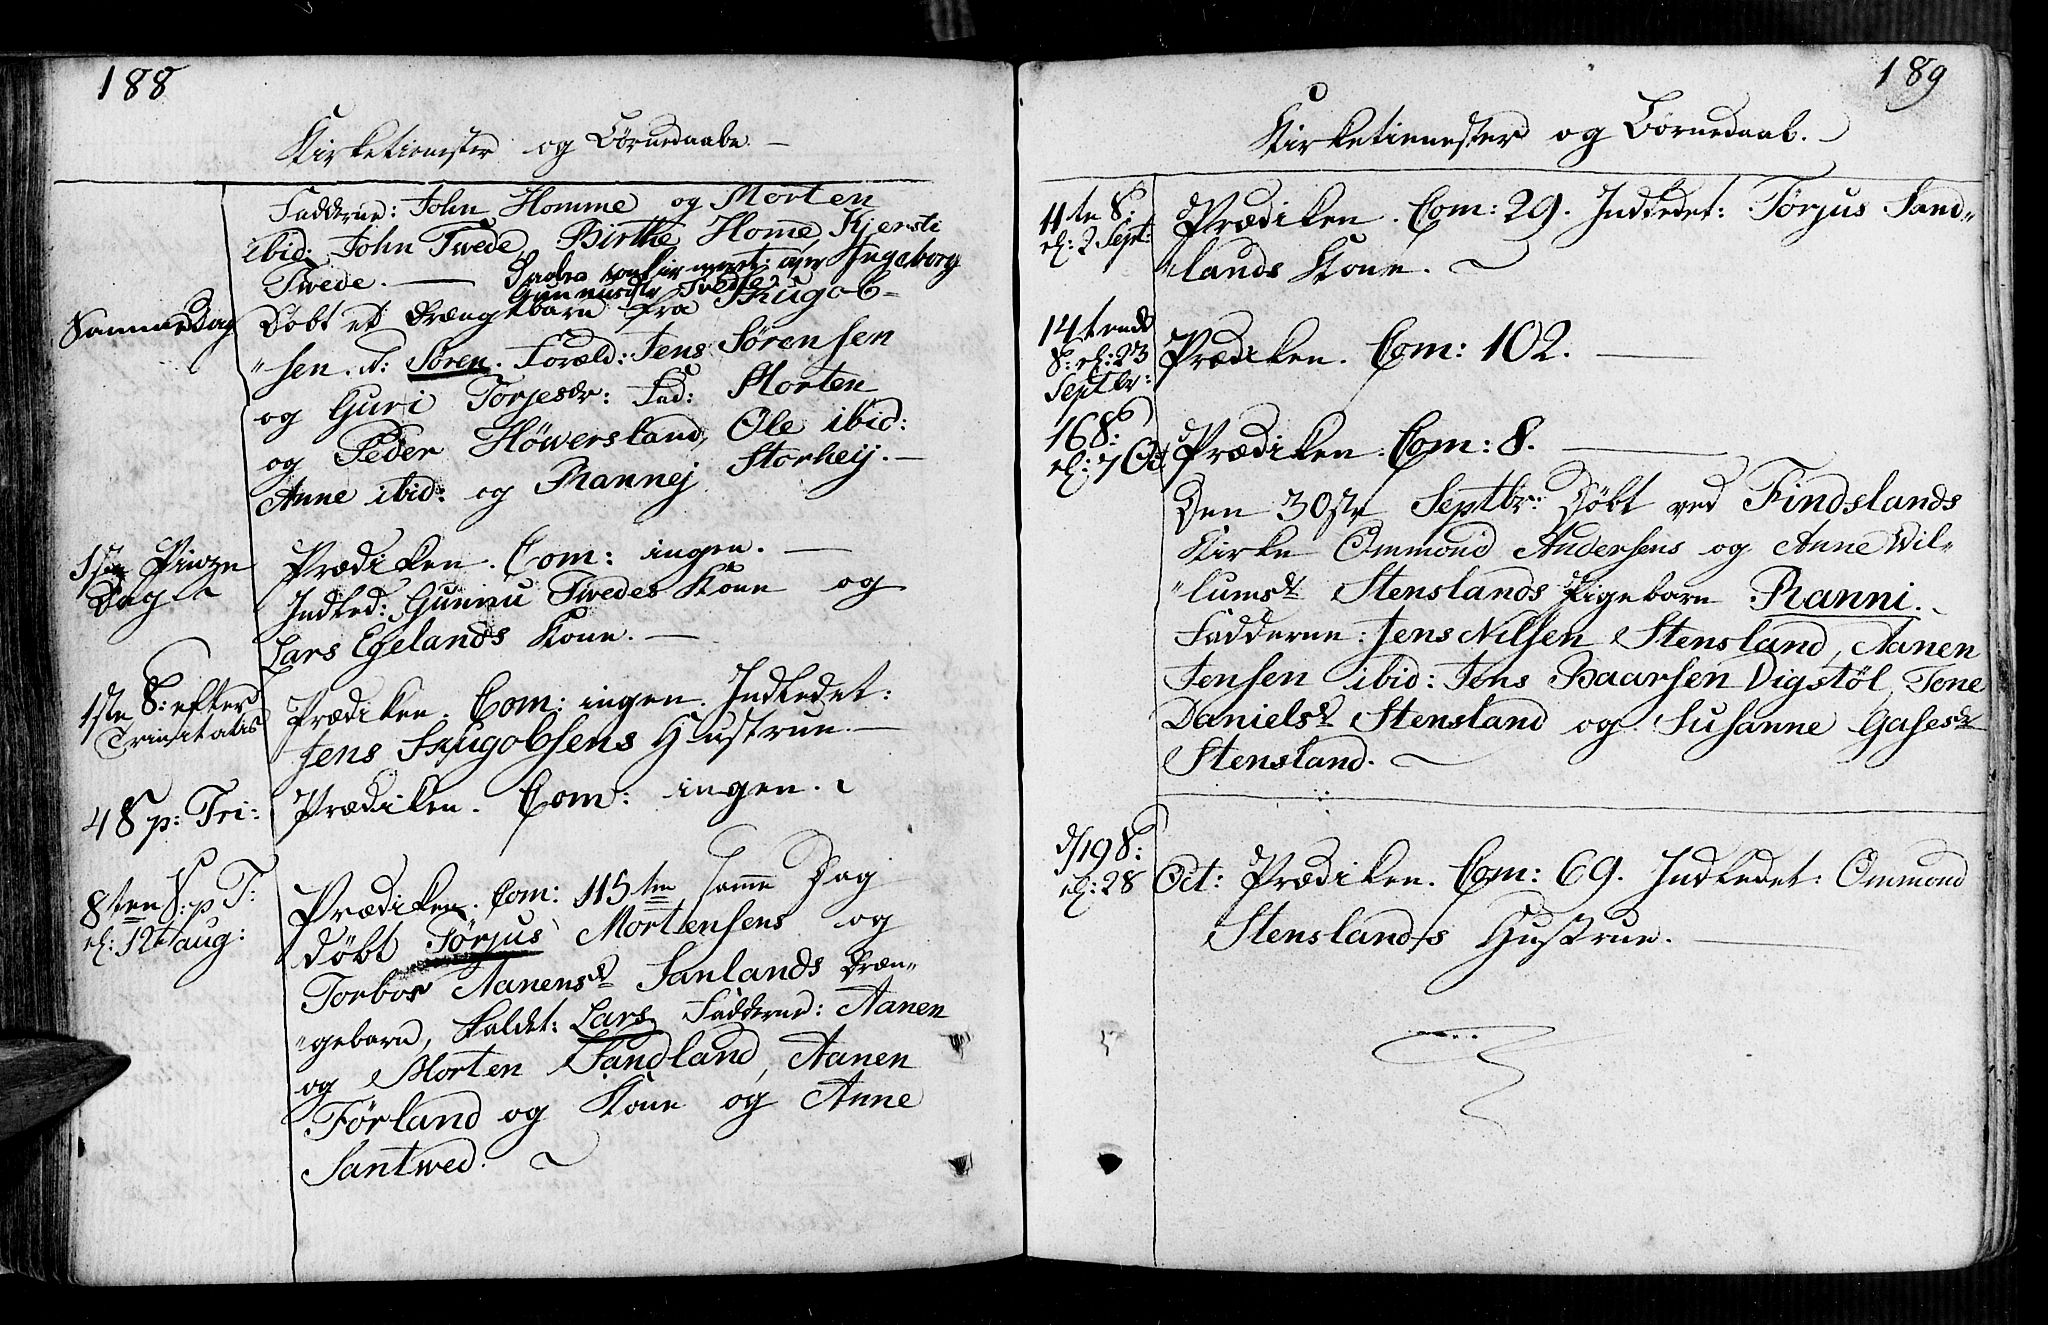 188
Kirketienester og Børnedaabe
Fadderne: John Homme og Morten
ibid: John Twede, Birthe Home Kjersti
Twede. — Dagen confirmeret: Ingeborg
Gunnusdtr Twede
Samme Dag
Døbt et Drængebarn fra Skugob-
"sen. n: Søren. Foræld: Jens Sørensen
og Guri Torjesdr: Fad: Morten
og Peder Höwersland, Ole ibid:
Anne ibid: og Rannej Storheij. —
1ste Pinze
Dag
Prædiken. Com: ingen. —
Indled: Gunnu Twedes Kone og
Lars Egelands Kone. —
1ste S: efter
Trinitatis
Prædiken. Com: ingen. Indledet:
Jens Skugobsens Hustrue. —
4 S p: Tri:
Prædiken. Com: ingen.
8ten S: p T:
el: 12t aug:
Prædiken. Com: 115ten samme Dag
døbt Törjus Mortensens og
Torbor Aanensdr Sanlands Dræn-
"gebarn, kaldet: Lars. Fadderne: Aanen
og Morten Sandland, Aanen
Förland og Kone og Anne
Santwed.
189
Kirketienester og Børnedaab.
11te S:
el: 2 Sept:
Prædiken. Com: 29. Indledet: Törjus Sand-
"lands Kone.
14tende
S: el: 23
Septbr:
Prædiken. Com: 102. —
16 S:
el: 7 Oct
Prædiken. Com: 8. —
Den 30te Septbr: Døbt ved Findslands
Kirke Ommond Andersens og Anne Wil-
"lumsdr Stenslands Pigebarn Ranni.
Fadderne: Jens Nilsen Stensland, Aanen
Jensen ibid: Jens Baarsen Digstøl, Tone
Danielsdr Stensland og Susanne Gasesdr
Stensland.
d/19 S:
el: 28
Oct: Prædiken. Com: 69. Indledet: Ommond
Stenslands Hustrue. —